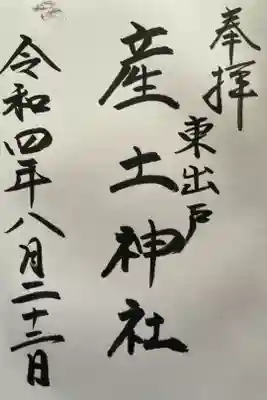 奉拝
東出戸
産土神社
令和四年八月二十二日